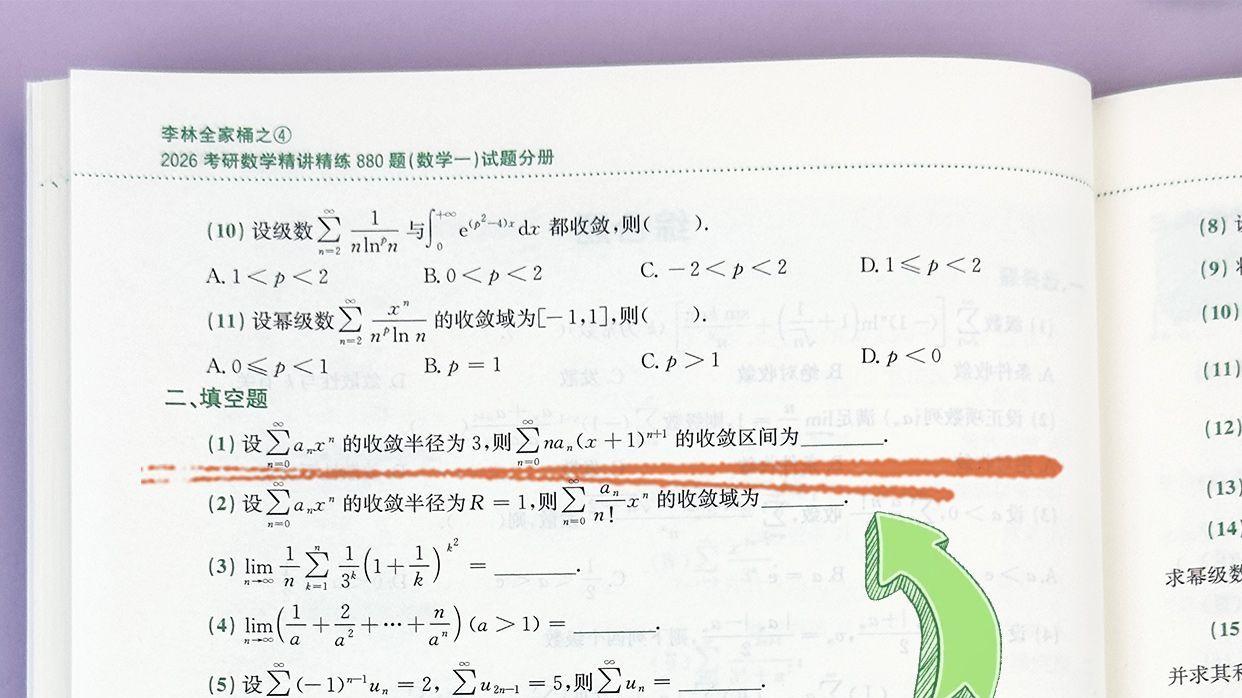 李林全家桶之④
2026 考研数学精讲精练 880 题(数学一)试题分册
(10) 设级数 $\sum_{n=2}^{\infty} \frac{1}{n\ln^p n}$ 与 $\int_0^{+\infty} e^{(p^2-4)x}dx$ 都收敛,则(　　).
A. 1 < p < 2　B. 0 < p < 2　C. −2 < p < 2　D. 1 ⩽ p < 2
(11) 设幂级数 $\sum_{n=2}^{\infty} \frac{x^n}{n^p \ln n}$ 的收敛域为[−1,1],则(　　).
A. 0 ⩽ p < 1　B. p = 1　C. p > 1　D. p < 0
二、填空题
(1) 设 $\sum_{n=0}^{\infty} a_n x^n$ 的收敛半径为 3,则 $\sum_{n=0}^{\infty} na_n(x+1)^{n+1}$ 的收敛区间为________.
(2) 设 $\sum_{n=0}^{\infty} a_n x^n$ 的收敛半径为 R = 1,则 $\sum_{n=0}^{\infty} \frac{a_n}{n!}x^n$ 的收敛域为________.
(3) $\lim_{n\to\infty} \frac{1}{n} \sum_{k=1}^{n} \frac{1}{3^k}\left(1+\frac{1}{k}\right)^{k^2}$ = ________.
(4) $\lim_{n\to\infty}\left(\frac{1}{a}+\frac{2}{a^2}+\cdots+\frac{n}{a^n}\right)$(a > 1) = ________.
(5) 设 $\sum_{n=1}^{\infty}(-1)^{n-1}u_n = 2$, $\sum_{n=1}^{\infty} u_{2n-1} = 5$,则 $\sum_{n=1}^{\infty} u_n$ = ________.
(8)
(9)
(10)
(11)
(12)
(13)
(14)
求幂级数
(15)
并求其和